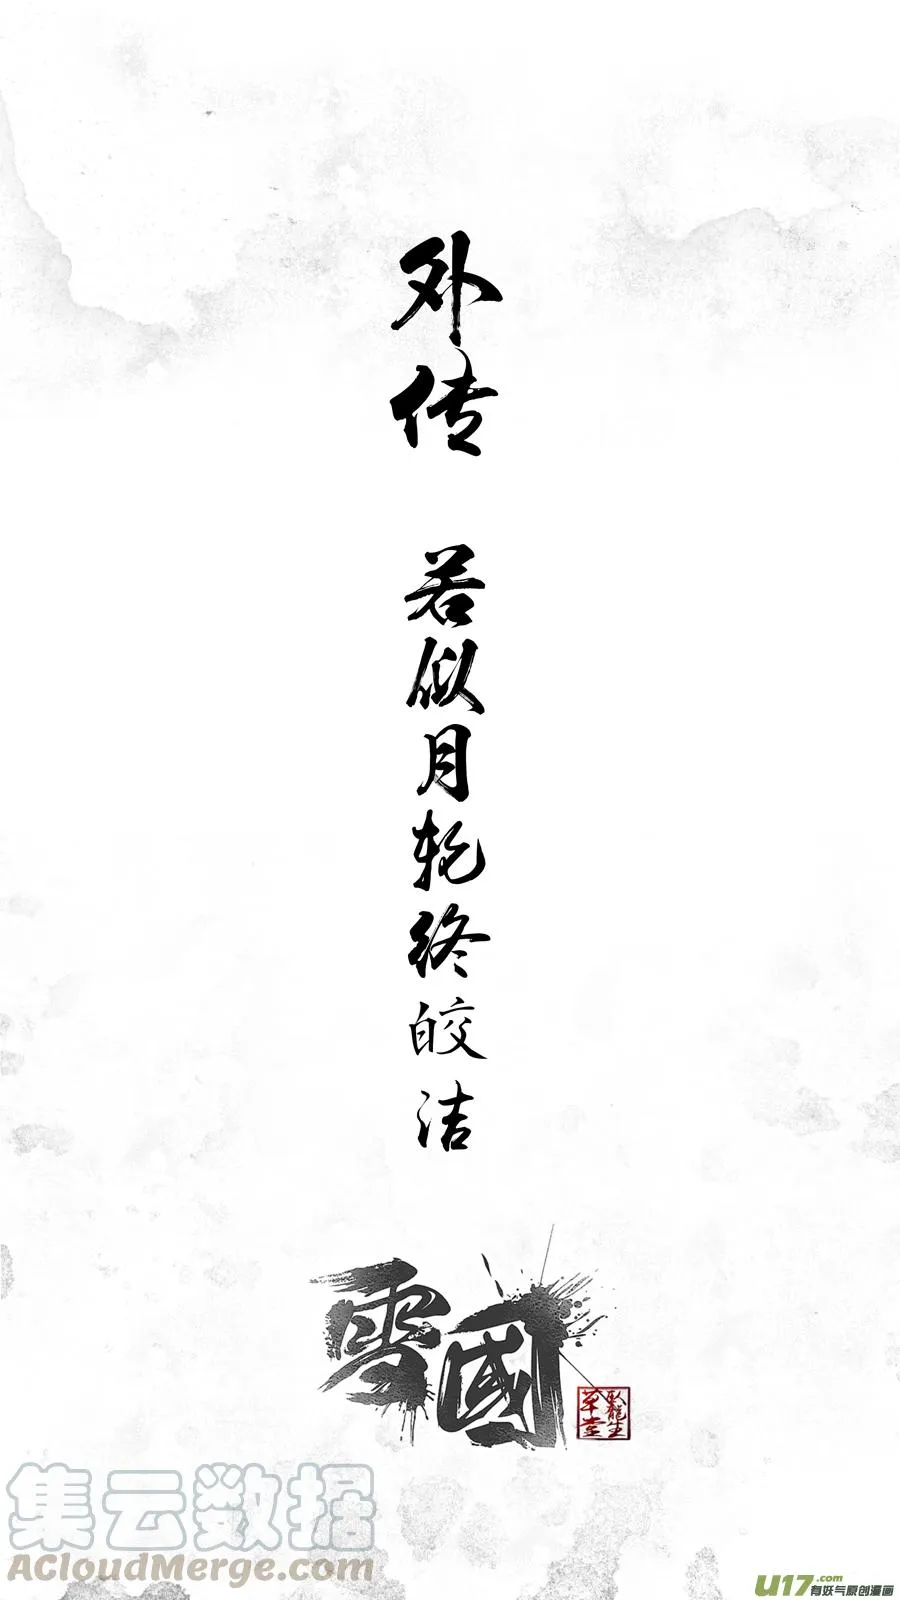 外传
若似月轮终皎洁
雪國
卧龍生
草堂
集云数据
ACloudMerge.com
U17.com
有妖气原创漫画